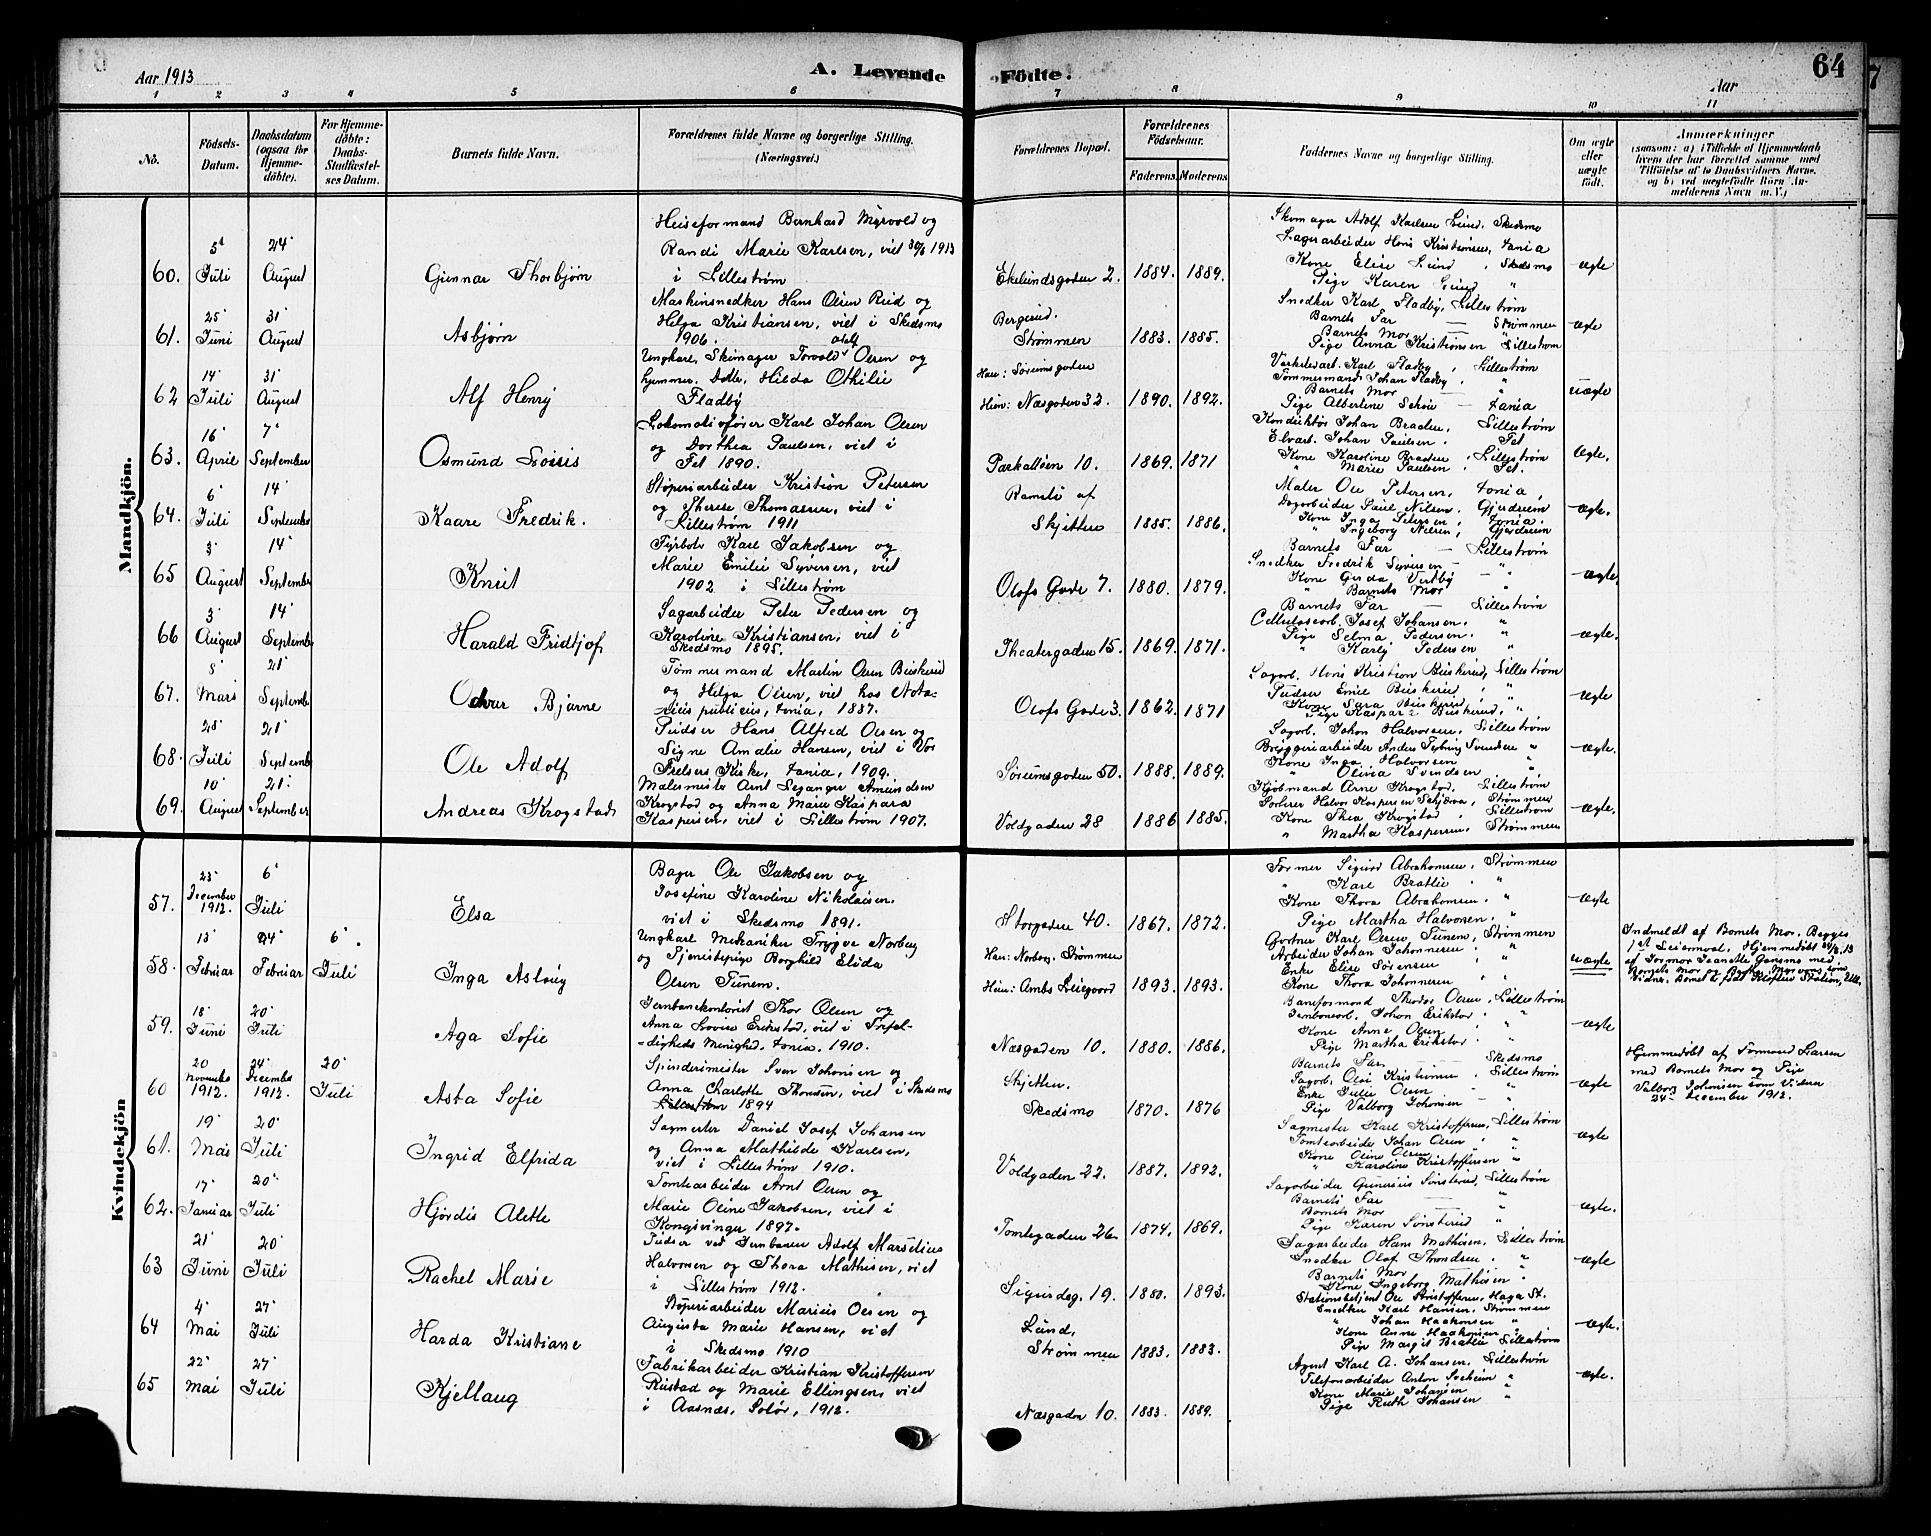 Aar 1913
A. Levende
Födte.
Aar
64
1 2 3 4 5 6 7 8 9 10 11
No.
Födsels-Datum.
Daabsdatum (ogsaa for Hjemme-döbte).
For Hjemme-döbte: Daabs-Stadfæstel-ses Datum.
Barnets fulde Navn.
Forældrenes fulde Navne og borgerlige Stilling. (Næringsvei.)
Forældrenes Bopæl.
Forældrenes Födselsaar.
Faderens. Moderens.
Faddernes Navne og borgerlige Stilling.
Om ægte eller uægte födt.
Anmærkninger
(saasom: a) i Tilfælde af Hjemmedaab hvem der har forrettet samme med Tilföielse af to Daabsvidners Navne, og b) ved uægtefödte Börn An-melderens Navn m. V.)
Mandkjön.
60. 5' Juli 24' August Gunnar Thorbjørn
Heiseformand Bernhard Myrvold og
Randi Marie Karlsen, viet 30/3 1913
i Lillestrøm
Ekelundsgaden 2. 1884. 1889.
Skomager Adolf Karlsen Lund, Skedsmo
Lagerarbeider Hans Kristiansen, Xania
Kone Elise Lund, Skedsmo
Pige Karen Lund "
ægte
61. 25' Juni 31' August Asbjørn
Maskinsnedker Hans Olsen Rud og
Helga Kristiansen, viet i Skedsmo
1906.
Bergerud.
Strømmen 1883. 1885.
Snedker Karl Fladby, Lillestrøm
Barnets Far — Strømmen
Barnets Mor — "
Pige Anna Kristiansen Lillestrøm
ægte
62 14' Juli 31' August Alf Henry
Ungkarl, Skomager Torvald Olsen og
hjemmev. Datter, Hilda Othilie
Fladby
Han: Sørumsgaden
Hun: Næsgaden 32. 1890. 1892.
Verkstedsarb. Karl Fladby, Lillestrøm
Tømmermand Johan Fladby, "
Barnets Mor — "
Pige Albertine — Xania
uægte
63. 16' April 7' September Osmund Louis
Lokomotivfører Karl Johan Olsen
og Dorthea Paulsen, viet i
Fet 1890.
Parkalléen 10. 1869. 1871
Konduktør Johan Braaten, Lillestrøm
Elvarb. Johan Paulsen. Fet
Kone Karoline Braaten, Lillestrøm
" Marie Paulsen, Fet.
ægte.
64. 6' Juli 14' September Kaare Fredrik.
Støperiarbeider Kristian Petersen
og Therese Thomassen, viet i
Lillestrøm 1911
Ramsli af
Skjetten 1885. 1886.
Maler Ole Petersen, Xania,
Dagarbeider Paul Nilsen, Gjerdrum
Kone Inga Petersen, Xania.
" Ingeborg Nilsen, Gjerdrum
ægte.
65 3' August 14' September Knut
Fyrbøter Karl Jakobsen og
Marie Emilie Syversen, viet
1902 i Lillestrøm
Olafs Gade 7. 1880. 1879.
Barnets Far — Lillestrøm
Snedker Fredrik Syversen — "
Kone Gerda Vestby — "
" Barnets Mor "
ægte
66 3' August 14' September Harald Fridtjof
Sagarbeider Peter Pedersen og
Karoline Kristiansen, viet i
Skedsmo 1895.
Theatergaden 15. 1869. 1871.
Barnets Far — Lillestrøm
Cellulosearb. Josef Johansen. "
Pige Selma Pedersen. "
" Karly Pedersen "
ægte.
67. 8' Mars 21' September Oskar Bjarne
Tømmermand Martin Olsen Buskerud
og Helga Olsen, viet hos Nota-
rius publicus, Xania, 1887.
Olafs Gade 3. 1862. 1871
Sagarb. Hans Kristian Buskerud, Lillestrøm
Pudser Emil Buskerud, "
Kone Sara Buskerud, "
Pige Kaspara Buskerud, "
ægte
68. 28' Juli 21' September Ole Adolf
Pudser Hans Alfred Olsen og
Signe Amalie Hansen, viet i Vor
Frelsers Kirke, Xania, 1909.
Sørumsgaden 50. 1888. 1889.
Sagarb. Johan Halvorsen, Lillestrøm
Bryggeriarbeider Anders Svendsen "
Kone Inga Halvorsen "
" Olivia Svendsen "
ægte.
69. 10' August 21' September Andreas Krogstad
Malermester Arnt Amundsen
Krogstad og Anna Marie Kaspara
Kaspersen, viet i Lillestrøm 1907.
Voldgaden 28 1886 1885.
Kjøbmand Arne Krogstad, Lillestrøm
Sorterer Halvor Kaspersen, Strømmen
Kone Thea Krogstad, Lillestrøm
" Martha Kaspersen, Strømmen
ægte.
Kvindekjön
57. 23' December 1912. 6' Juli Elsa
Bager Ole Jakobsen og
Josefine Karoline Nikolaisen,
viet i Skedsmo 1891.
Storgaden 40. 1867. 1872.
Former Sigurd Abrahamsen, Strømmen
" Karl Bratlie, "
Kone Thora Abrahamsen, "
Pige Martha Halvorsen, "
ægte
58. 13' Februar 24' Februar 6' Juli Inga Aslaug
Ungkarl Mekaniker Trygve Norberg
og Tjenestepige Borghild Elida
Olsen Tunem.
Han: Norberg, Strømmen
Hun: Ambs Leiegaard 1893. 1893.
Gartner Karl Olsen Tunem, Strømmen
Arbeider Johan Johannesen "
Enke Elise Sørensen "
Kone Thora Johannesen "
uægte
Indmeldt af Barnets Mor. Begges
1st Leiermaal. Hjemmedøbt 24/2 13
af Jormor Jeanette Gansmo med
Barnets Mor og som
Vidner. Barnet er født Kløften Station, Ulls.
59. 18' Juni 20' Juli Aga Sofie
Jernbanekontorist Thor Olsen og
Anna Lovise Erikstad, viet i Trefol-
digheds Menighed, Xania. 1910.
Næsgaden 10. 1880. 1886.
Baneformand Theodor Olsen, Lillestrøm
Jernbanearb. Johan Erikstad, "
Kone Anne Olsen "
Pige Martha Erikstad "
ægte
60 20 November 1912. 24' December 1912. 20' Juli Asta Sofie
Spinderimester Sven Johansen og
Anna Charlotte Thoresen, viet i Skedsmo
Lillestrøm 1894
Skjetten.
Skedsmo 1870. 1876
Barnets Far. Skedsmo
Sagarb. Olai Kristiansen, Lillestrøm
Enke Julie Olsen — "
Pige Valborg Johansen — "
ægte
Hjemmedøbt af Formand Larsen
med Barnets Mor og Pige
Valborg Johansen som Vidner
24– December 1912.
61. 19' Mai 20' Juli Ingrid Elfrida
Sagmester Daniel Josef Johansen
og Anna Mathilde Karlsen,
viet i Lillestrøm 1910.
Voldgaden 22. 1887. 1892.
Sagmester Karl Kristoffersen, Lillestrøm
Tomtearbeider Johan Olsen "
Kone Oline Olsen "
" Karoline Kristoffersen "
ægte
62. 17' Januar 20' Juli Hjørdis Alette
Tomtearbeider Arnt Olsen og
Marie Oline Jakobsen, viet i
Kongsvinger 1897.
Tomtegaden 26. 1874. 1869.
Sagarbeider Gunerius Sønsterud, Lillestrøm
Barnets Far "
Barnets Mor "
Pige Karen Sønsterud "
ægte.
63 21' Juni 20' Juli Rachel Marie
Pudser ved Jernbanen Adolf Marselius
Halvorsen og Thora Mathisen, viet
i Lillestrøm 1912.
Sigurdsg. 19. 1880. 1893.
Sagarbeider Hans Mathisen, Lillestrøm
Snedker Olaf Thondsen "
Barnets Mor — "
Kone Ingeborg Mathisen "
ægte
64 4' Mai 27' Juli Harda Kristiane
Støperiarbeider Marius Olsen og
Augusta Marie Hansen, viet
i Skedsmo 1910
Lund,
Strømmen 1883. 1883.
Stationsbetjent Ole Kristoffersen, Haga St.
Snedker Karl Hansen, Strømmen
" Johan Haakonsen "
Kone Anne Haakonsen "
Pige Margit Bratlie Lillestrøm
ægte.
65 22' Mai 27' Juli Kjellaug
Fabrikarbeider Kristian Kristoffersen
Rustad og Marie Ellingsen, viet
i Aasnæs, Solør, 1912.
Næsgaden 10. 1883. 1889.
Agent Karl A. Johansen, Lillestrøm
Telefonarbeider Anton Solheim "
Kone Marie Johansen "
Pige Ruth Johansen "
ægte.